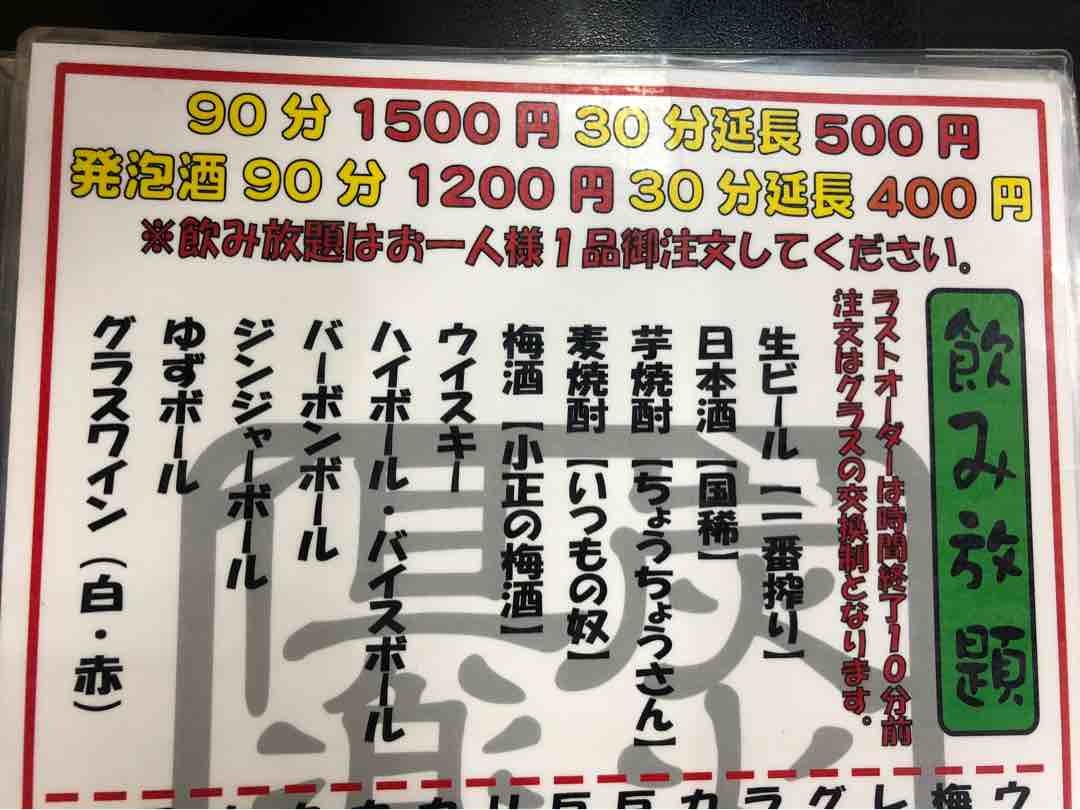 90分 1500円 30分延長 500円
発泡酒 90分 1200円 30分延長 400円
※飲み放題はお一人様1品御注文してください。
飲み放題
ラストオーダーは時間終了10分前
注文はグラスの交換制となります。
生ビール【一番搾り】
日本酒【国稀】
芋焼酎【ちょうちょうさん】
麦焼酎【いつもの奴】
梅酒【小正の梅酒】
ウイスキー
ハイボール・バイスボール
バーボンボール
ジンジャーボール
ゆずボール
グラスワイン（白・赤）